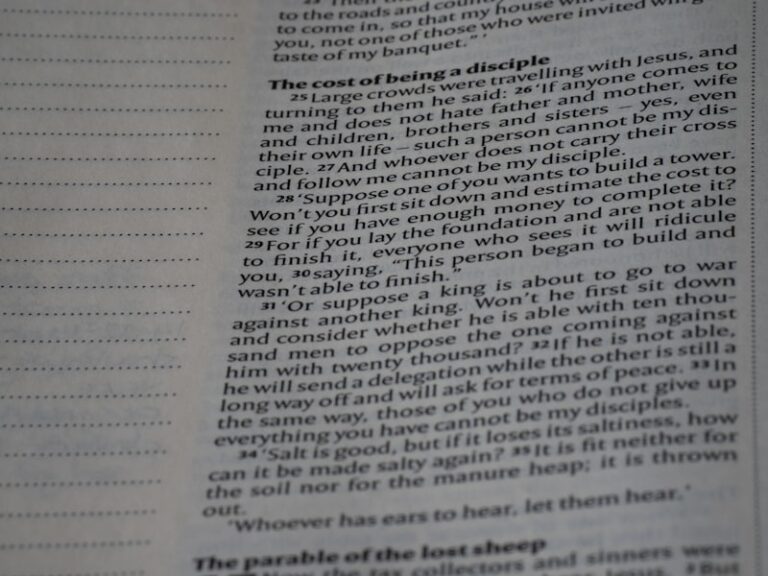 to the roads and country
to come in, so that my house will
you, not one of those who were invited will g
taste of my banquet."'
The cost of being a disciple
25 Large crowds were travelling with Jesus, and
turning to them he said: 26 'If anyone comes to
me and does not hate father and mother, wife
and children, brothers and sisters – yes, even
their own life – such a person cannot be my dis-
ciple. 27 And whoever does not carry their cross
and follow me cannot be my disciple.
28 'Suppose one of you wants to build a tower.
Won't you first sit down and estimate the cost to
see if you have enough money to complete it?
29 For if you lay the foundation and are not able
to finish it, everyone who sees it will ridicule
you, 30 saying, "This person began to build and
wasn't able to finish."
31 'Or suppose a king is about to go to war
against another king. Won't he first sit down
and consider whether he is able with ten thou-
sand men to oppose the one coming against
him with twenty thousand? 32 If he is not able,
he will send a delegation while the other is still a
long way off and will ask for terms of peace. 33 In
the same way, those of you who do not give up
everything you have cannot be my disciples.
34 'Salt is good, but if it loses its saltiness, how
can it be made salty again? 35 It is fit neither for
the soil nor for the manure heap; it is thrown
out.
'Whoever has ears to hear, let them hear.'
The parable of the lost sheep
Now the tax collectors and sinners were
Jesus. 2 But